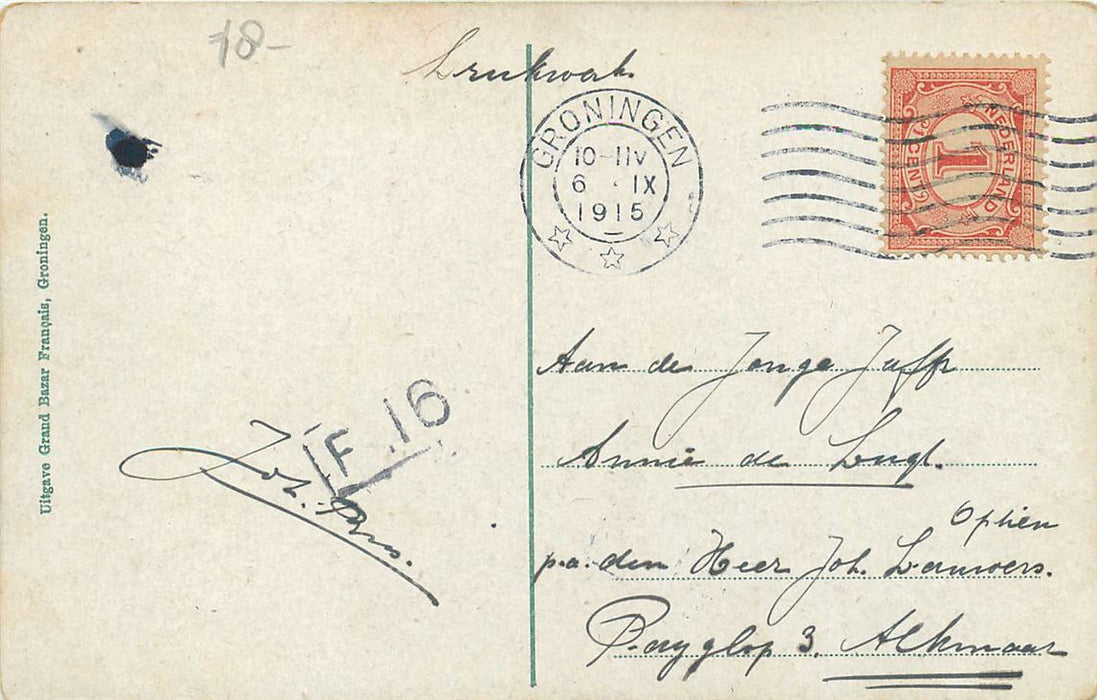 18-
Drukwerk
GRONINGEN
10-11V
6 . IX
1915
NEDERLAND
1
1 CENT
Uitgave Grand Bazar Français, Groningen.
F .16
Joh.
Aan de Jonge Juffr
Annie de Lugt.
Optien
p.a. den Heer Joh. Lauwers.
3. Alkmaar